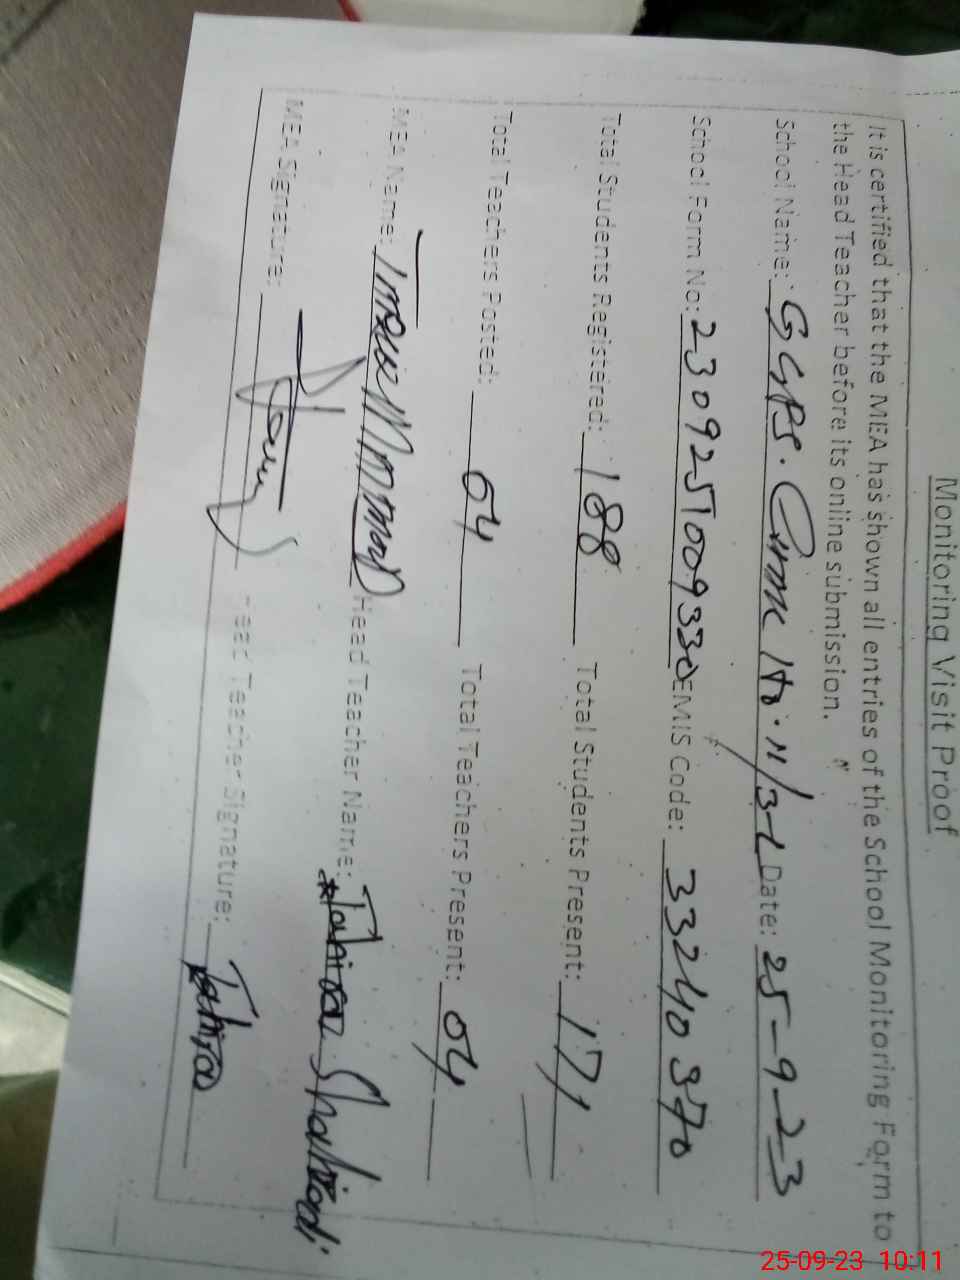 Monitoring Visit Proof
It is certified that the MEA has shown all entries of the School Monitoring Form to
the Head Teacher before its online submission.
School Name: GGPS. 11/3-L Date: 25-9-23
School Form No: 2309251009330 EMIS Code: 33240370
Total Students Registered: 188 Total Students Present: 171
Total Teachers Posted: 04 Total Teachers Present: 04
MEA Name: Head Teacher Name: Tahira
MEA Signature: Head Teacher Signature: Tahira
25-09-23 10:11